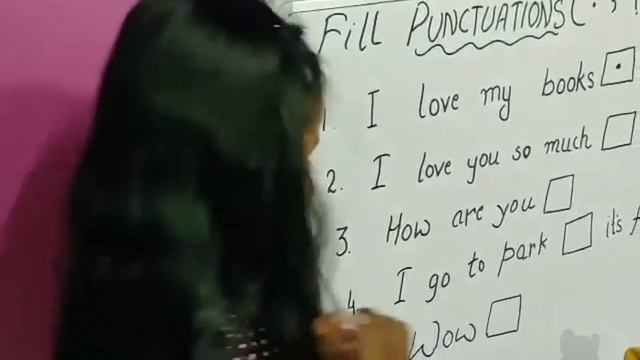 Fill PUNCTUATIONS ( . ,
1. I love my books .
2. I love you so much
3. How are you
4. I go to park it's
Wow